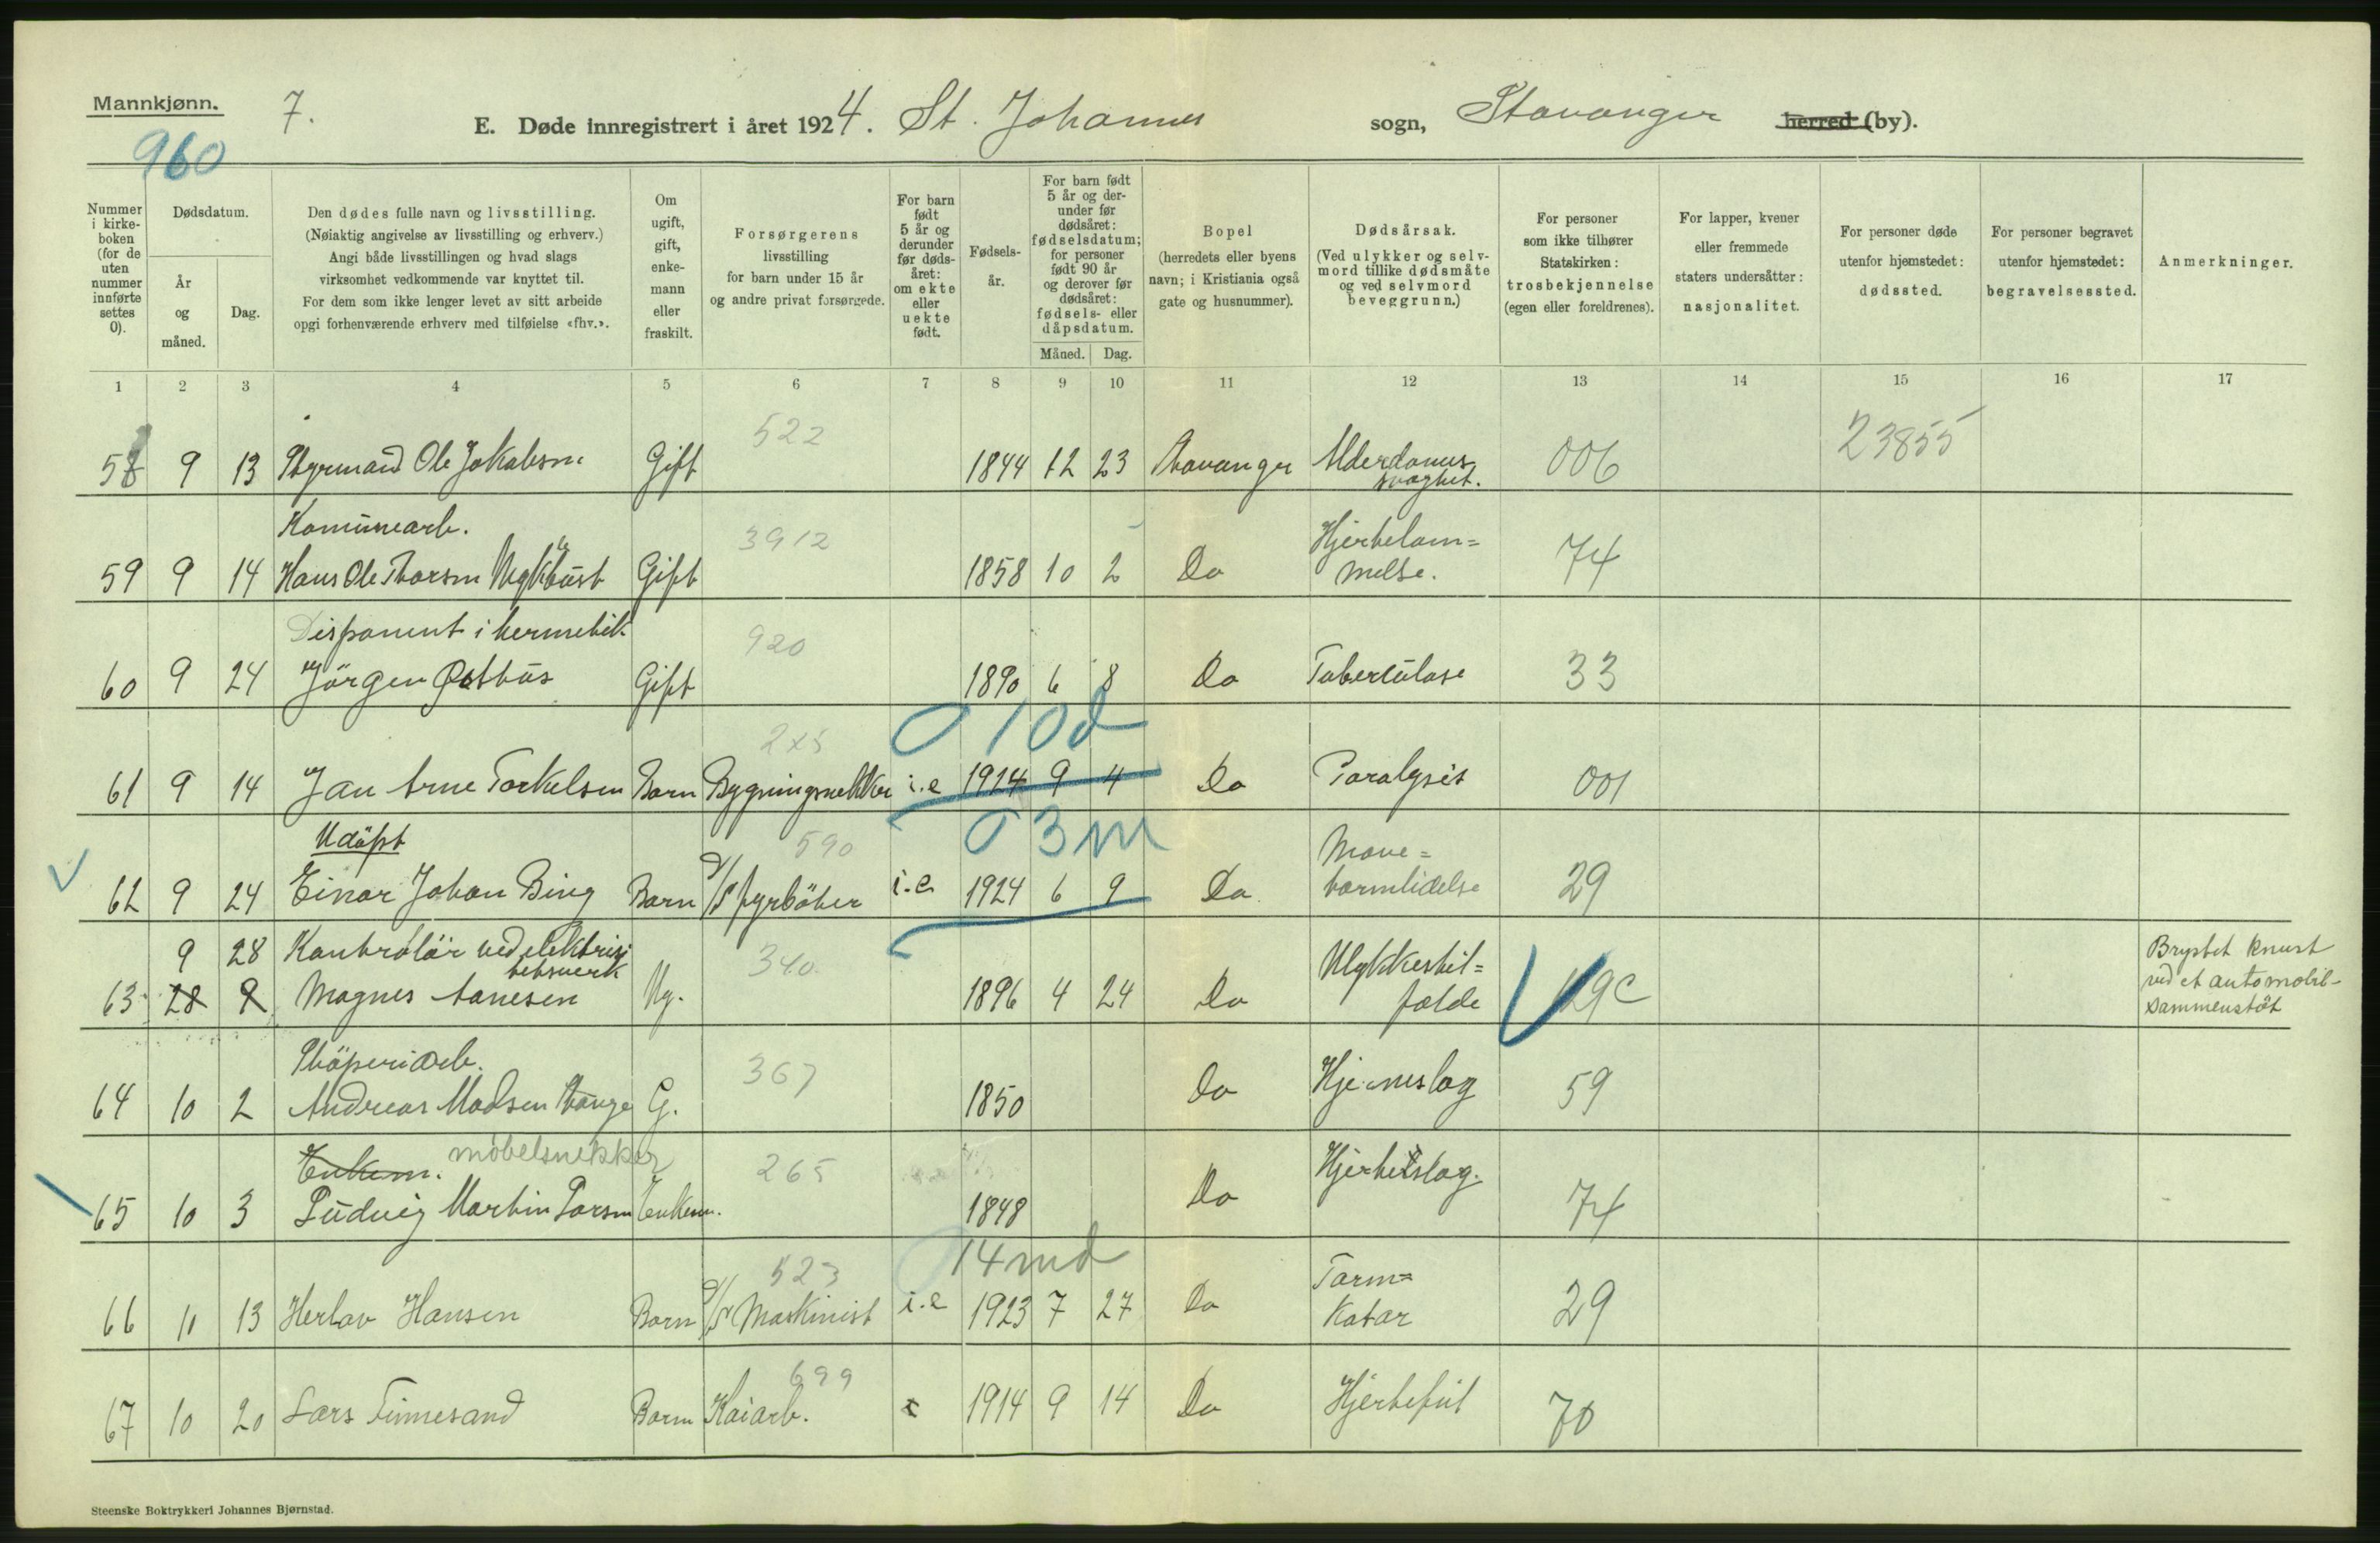 Mannkjønn.
7.
960
E. Døde innregistrert i året 1924. St. Johannes sogn, Stavanger herred (by).
Nummer i kirkeboken (for de uten nummer innførte settes 0).
Dødsdatum.
År og måned.
Dag.
Den dødes fulle navn og livsstilling.
(Nøiaktig angivelse av livsstilling og erhverv.)
Angi både livsstillingen og hvad slags
virksomhet vedkommende var knyttet til.
For dem som ikke lenger levet av sitt arbeide
opgi forhenværende erhverv med tilføielse «fhv.».
Om ugift, gift, enkemann eller fraskilt.
Forsørgerens livsstilling
for barn under 15 år
og andre privat forsørgede.
For barn født 5 år og derunder før dødsåret: om ekte eller uekte født.
Fødselsår.
For barn født 5 år og derunder før dødsåret: fødselsdatum; for personer født 90 år og derover før dødsåret: fødsels- eller dåpsdatum.
Måned.
Dag.
Bopel
(herredets eller byens
navn; i Kristiania også
gate og husnummer).
Dødsårsak.
(Ved ulykker og selvmord tillike dødsmåte og ved selvmord beveggrunn.)
For personer
som ikke tilhører
Statskirken:
trosbekjennelse
(egen eller foreldrenes).
For lapper, kvener
eller fremmede
staters undersåtter:
nasjonalitet.
For personer døde
utenfor hjemstedet:
dødssted.
For personer begravet
utenfor hjemstedet:
begravelsessted.
Anmerkninger.
1 2 3 4 5 6 7 8 9 10 11 12 13 14 15 16 17
522 23855
58 9 13 Styrmand Ole Jakobsen Gift 1844 12 23 Stavanger Alderdoms svaghet. 006
Komunearb. 3912
59 9 14 Hans Ole Thorsen Gift 1858 10 2 Do Hjertelam= melse. 74
Disponent i hermetik 920
60 9 24 Jörgen Østhus Gift 1890 6 8 Do Tuberculose 33
245 0 10d
61 9 14 Jan Arne Torkelsen Barn Bygningsnekker i.e 1924 9 4 Do Paralysis 001
Udöpt 590 0 3m
62 9 24 Einar Johan Bing Barn D/S fyrböter i.e. 1924 6 9 Do Mave= tarmlidelse 29
9 28 Kontrolör ved elektrisi tetsverk 340
63 28 9 Magnes Aanesen Ug. 1896 4 24 Do Ulykkestil= felde 29c Brystet knust ved et automobil- sammenstöt
Stöperiarb. 367
64 10 2 Andreas Madsen Stange G. 1850 Do Hjerneslag 59
Enkem. möbelsnekker 265
65 10 3 Ludvig Martin Larsen Enkem. 1848 Do Hjerteslag. 74
523 14 md
66 11 13 Herlov Hansen Barn D/S Maskinist i.e 1923 7 27 Do Tarm= Katar 29
699
67 10 20 Lars Finnesand Barn Kaiarb. 1914 9 14 Do Hjertefeil 70
Steenske Boktrykkeri Johannes Bjørnstad.